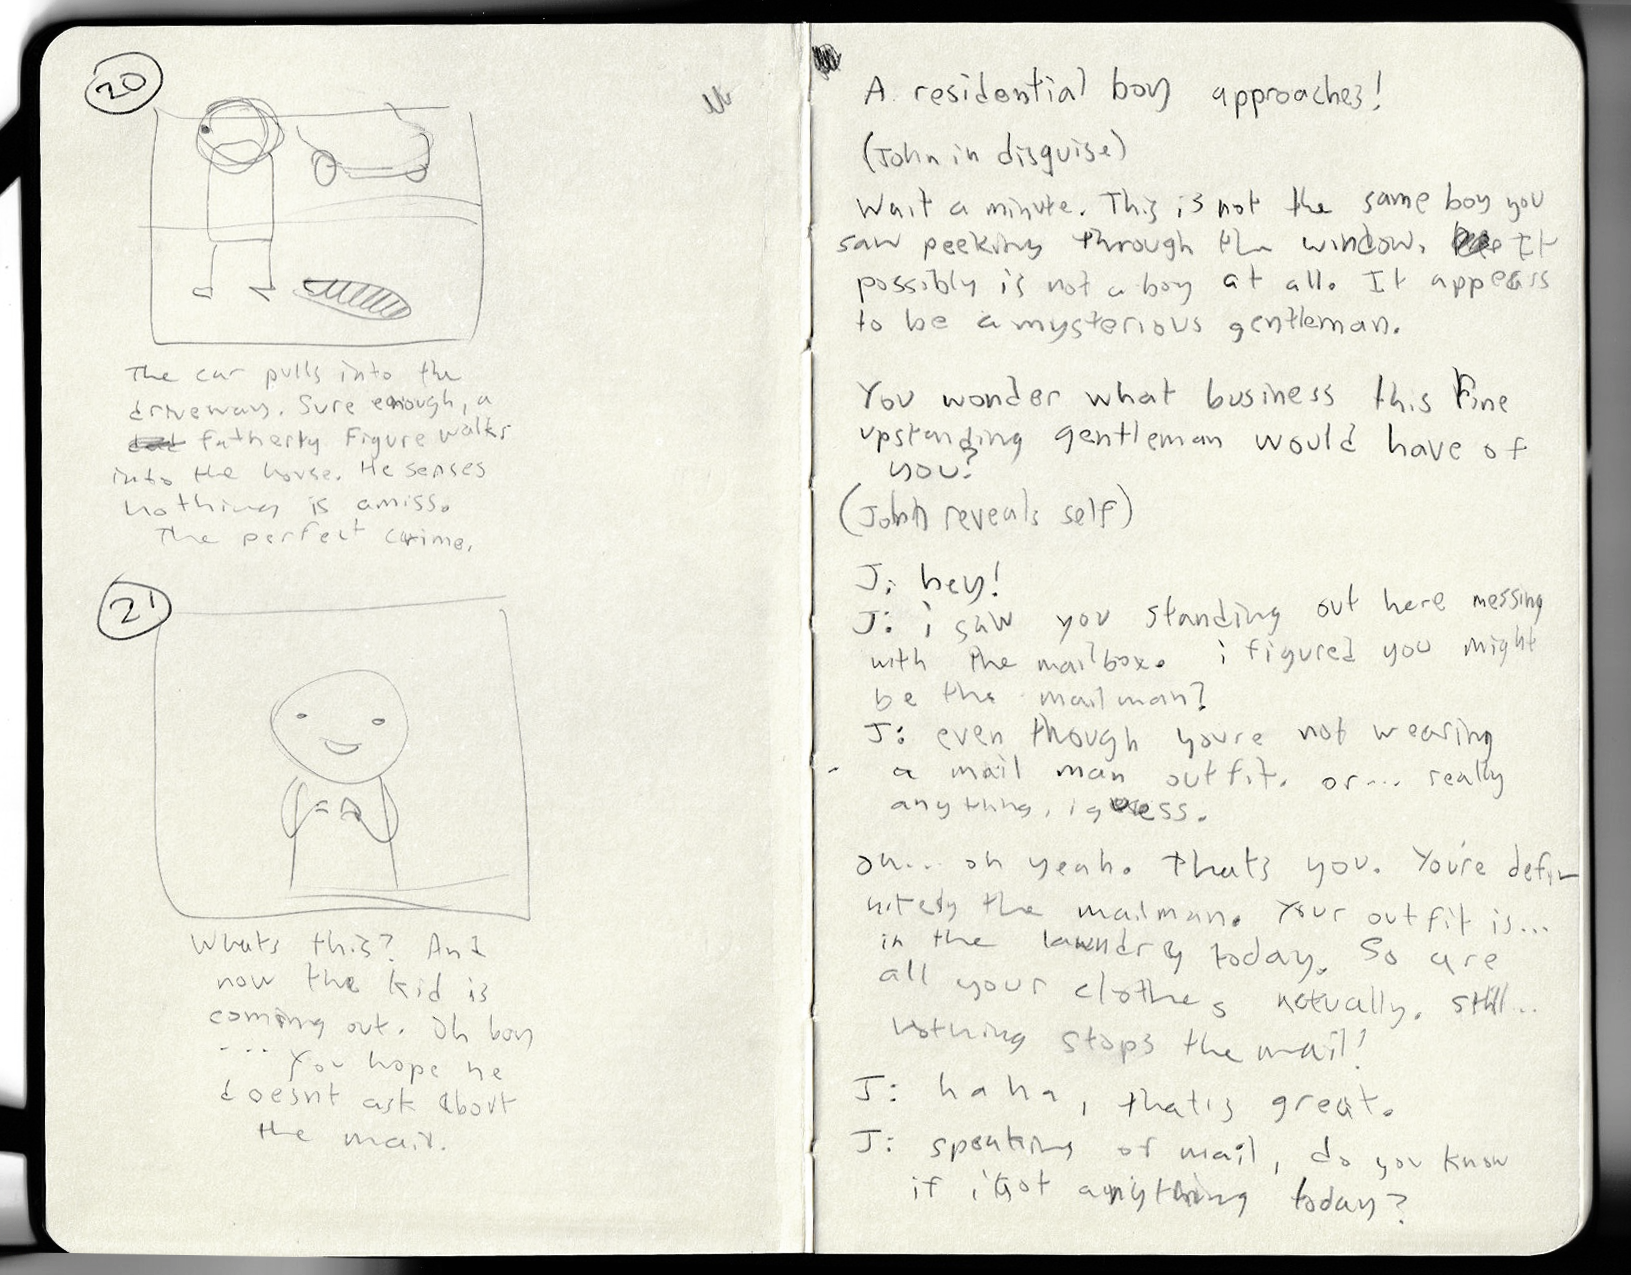 20
The car pulls into the
driveway. Sure enough, a
fatherly figure walks
into the house. He senses
nothing is amiss.
The perfect crime.
21
Whats this? And
now the kid is
coming out. Oh boy
... You hope he
doesnt ask about
the mail.
A residential boy approaches!
(John in disguise)
Wait a minute. This is not the same boy you
saw peeking through the window. It
possibly is not a boy at all. It appears
to be a mysterious gentleman.
You wonder what business this fine
upstanding gentleman would have of
you?
(John reveals self)
J: hey!
J: i saw you standing out here messing
with the mailbox. i figured you might
be the mailman?
J: even though youre not wearing
a mail man outfit. or... really
anything, i guess.
oh... oh yeah. thats you. You're defin
nitely the mailman. Your outfit is...
in the laundry today. So are
all your clothes actually. still...
nothing stops the mail!
J: haha, thats great.
J: speaking of mail, do you know
if i got anything today?